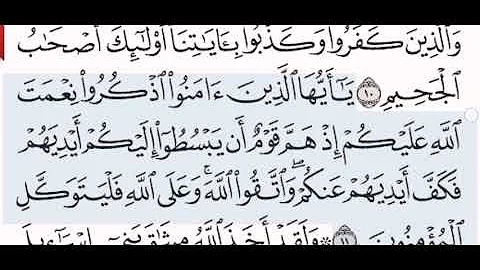 وَالَّذِينَ كَفَرُوا وَكَذَّبُوا بِـَٔايَـٰتِنَا أُولَـٰٓئِكَ أَصْحَـٰبُ
الْجَحِيمِ ۝١٠ يَـٰٓأَيُّهَا الَّذِينَ ءَامَنُوا اذْكُرُوا نِعْمَتَ
اللَّهِ عَلَيْكُمْ إِذْ هَمَّ قَوْمٌ أَن يَبْسُطُوٓا إِلَيْكُمْ أَيْدِيَهُمْ
فَكَفَّ أَيْدِيَهُمْ عَنكُمْ ۖ وَاتَّقُوا اللَّهَ ۚ وَعَلَى اللَّهِ فَلْيَتَوَكَّلِ
الْمُؤْمِنُونَ ۝١١ ۞ وَلَقَدْ أَخَذَ اللَّهُ مِيثَـٰقَ بَنِىٓ إِسْرَٰٓءِيلَ